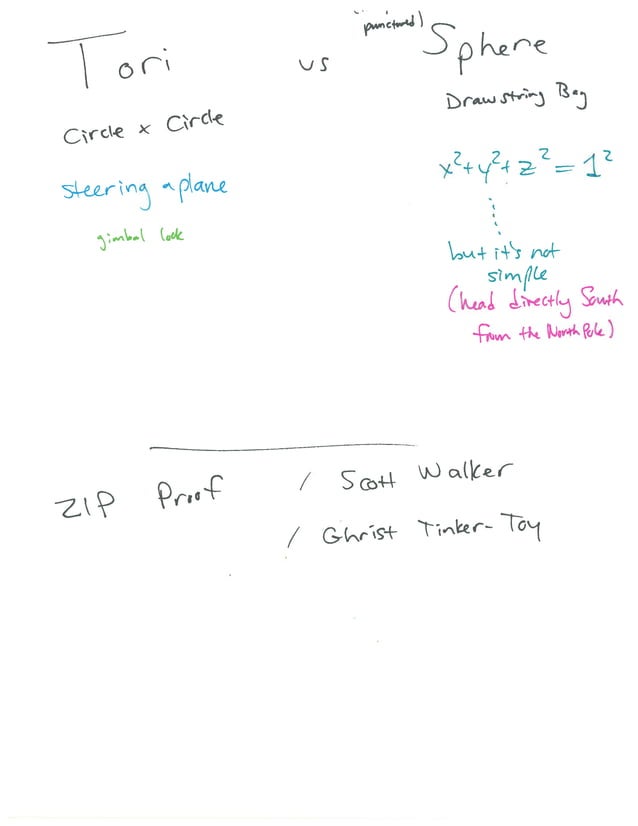 Tori vs (punctured) Sphere
Circle x Circle
Drawstring Bag
steering a plane
x²+y²+z²=1²
gimbal lock
but it's not
simple
(head directly South
from the North Pole)
ZIP Proof / Scott Walker
/ Ghrist Tinker-Toy